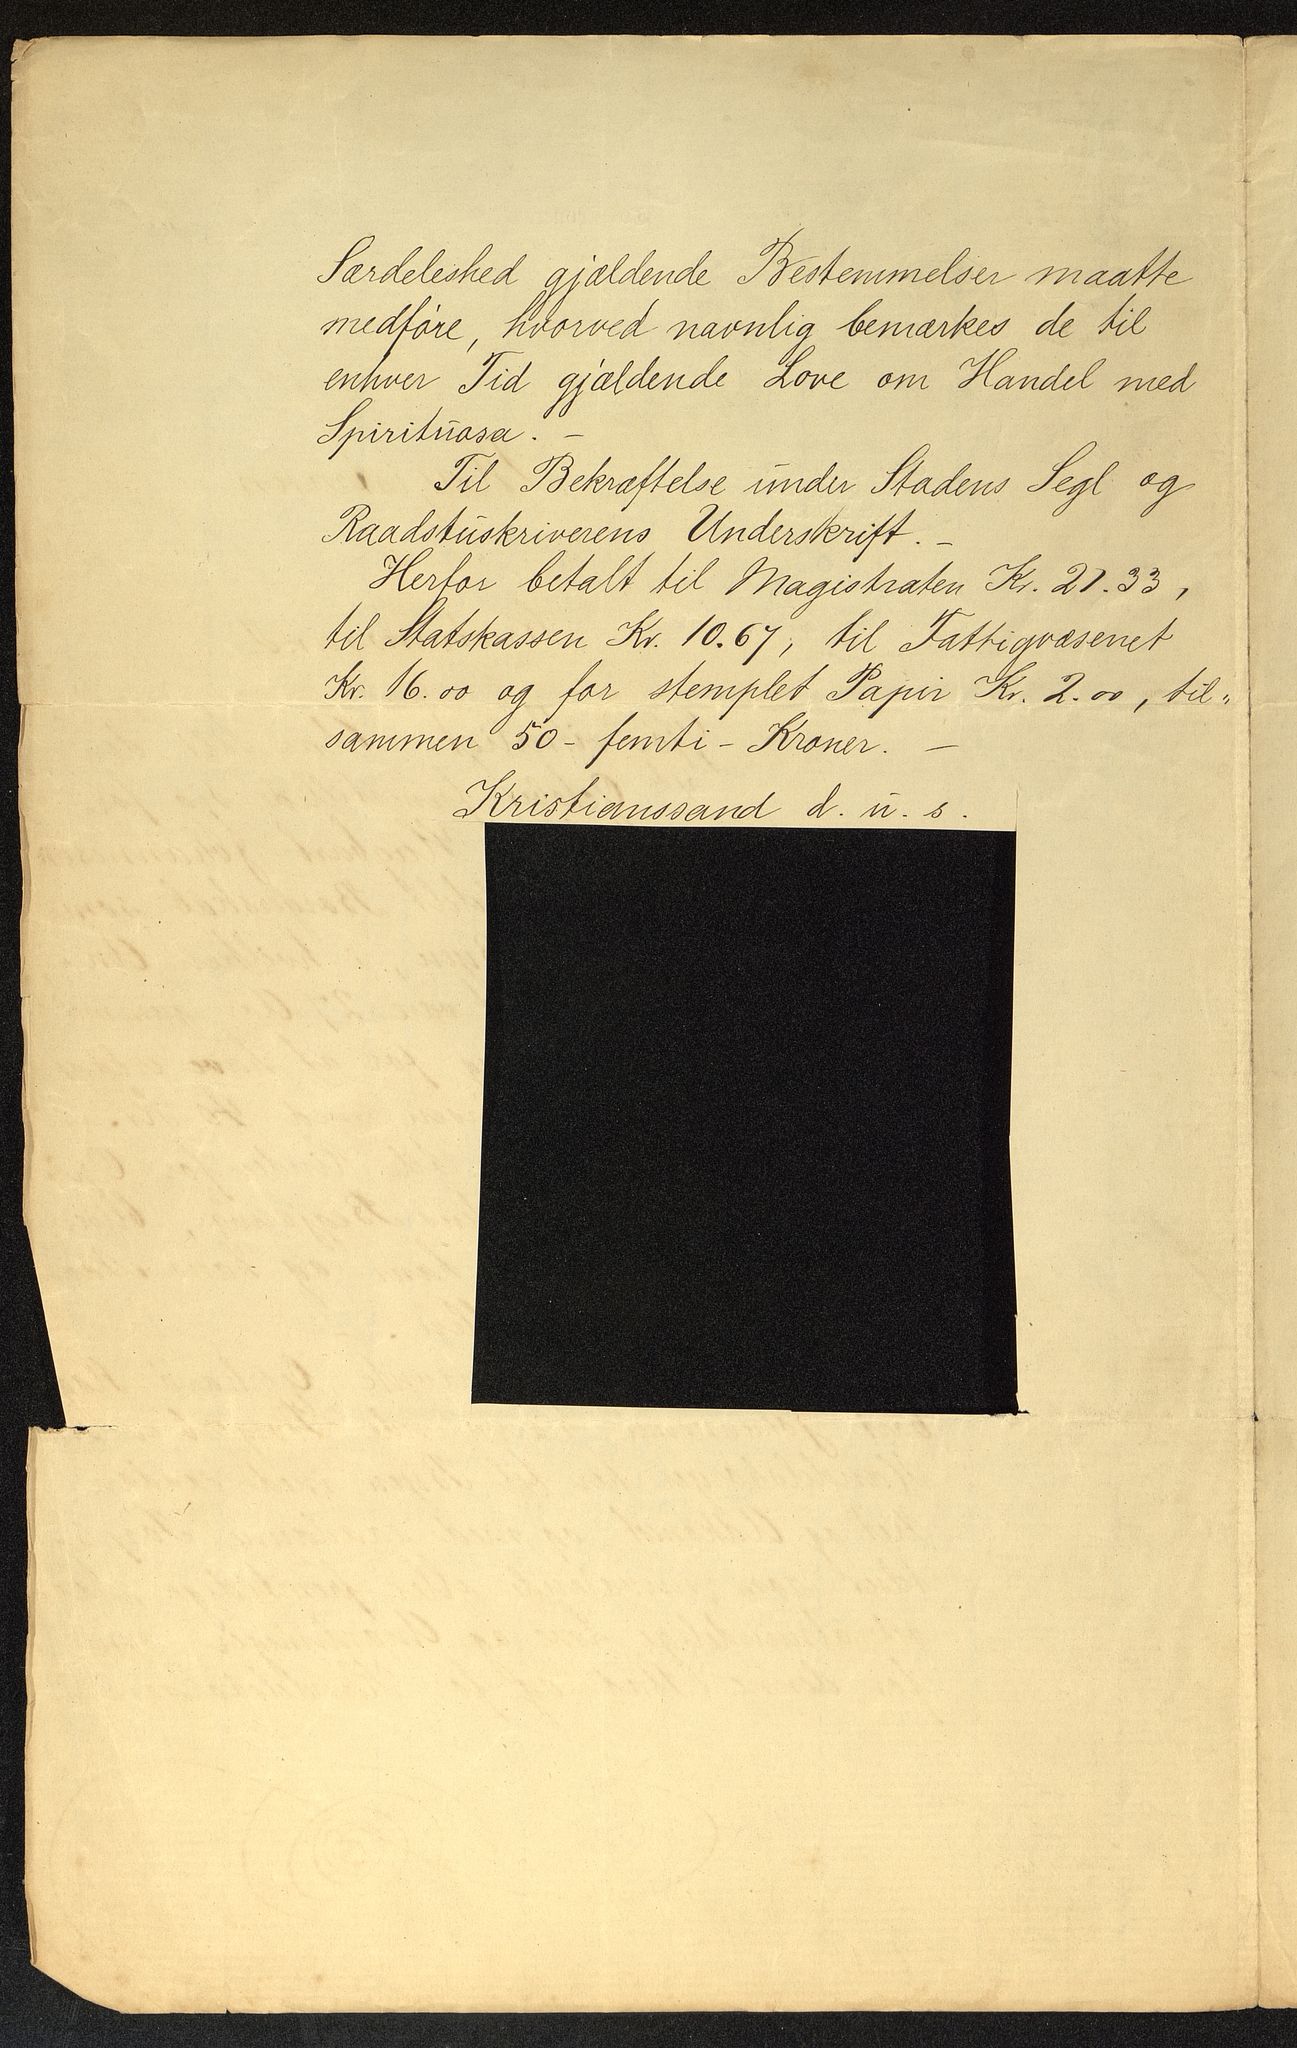 Særdeleshed gjældende Bestemmelser maatte
medføre, hvorved navnlig bemærkes de til
enhver Tid gjældende Love om Handel med
Spirituosa. –
Til Bekræftelse under Stadens Segl og
Raadstuskriverens Underskrift. –
Herfor betalt til Magistraten Kr. 21.33,
til Statskassen Kr. 10.67, til Fattigvæsenet
Kr. 16.00 og for stemplet Papir Kr. 2.00, til„
sammen 50 – femti – Kroner. –
Kristianssand d. u. s.